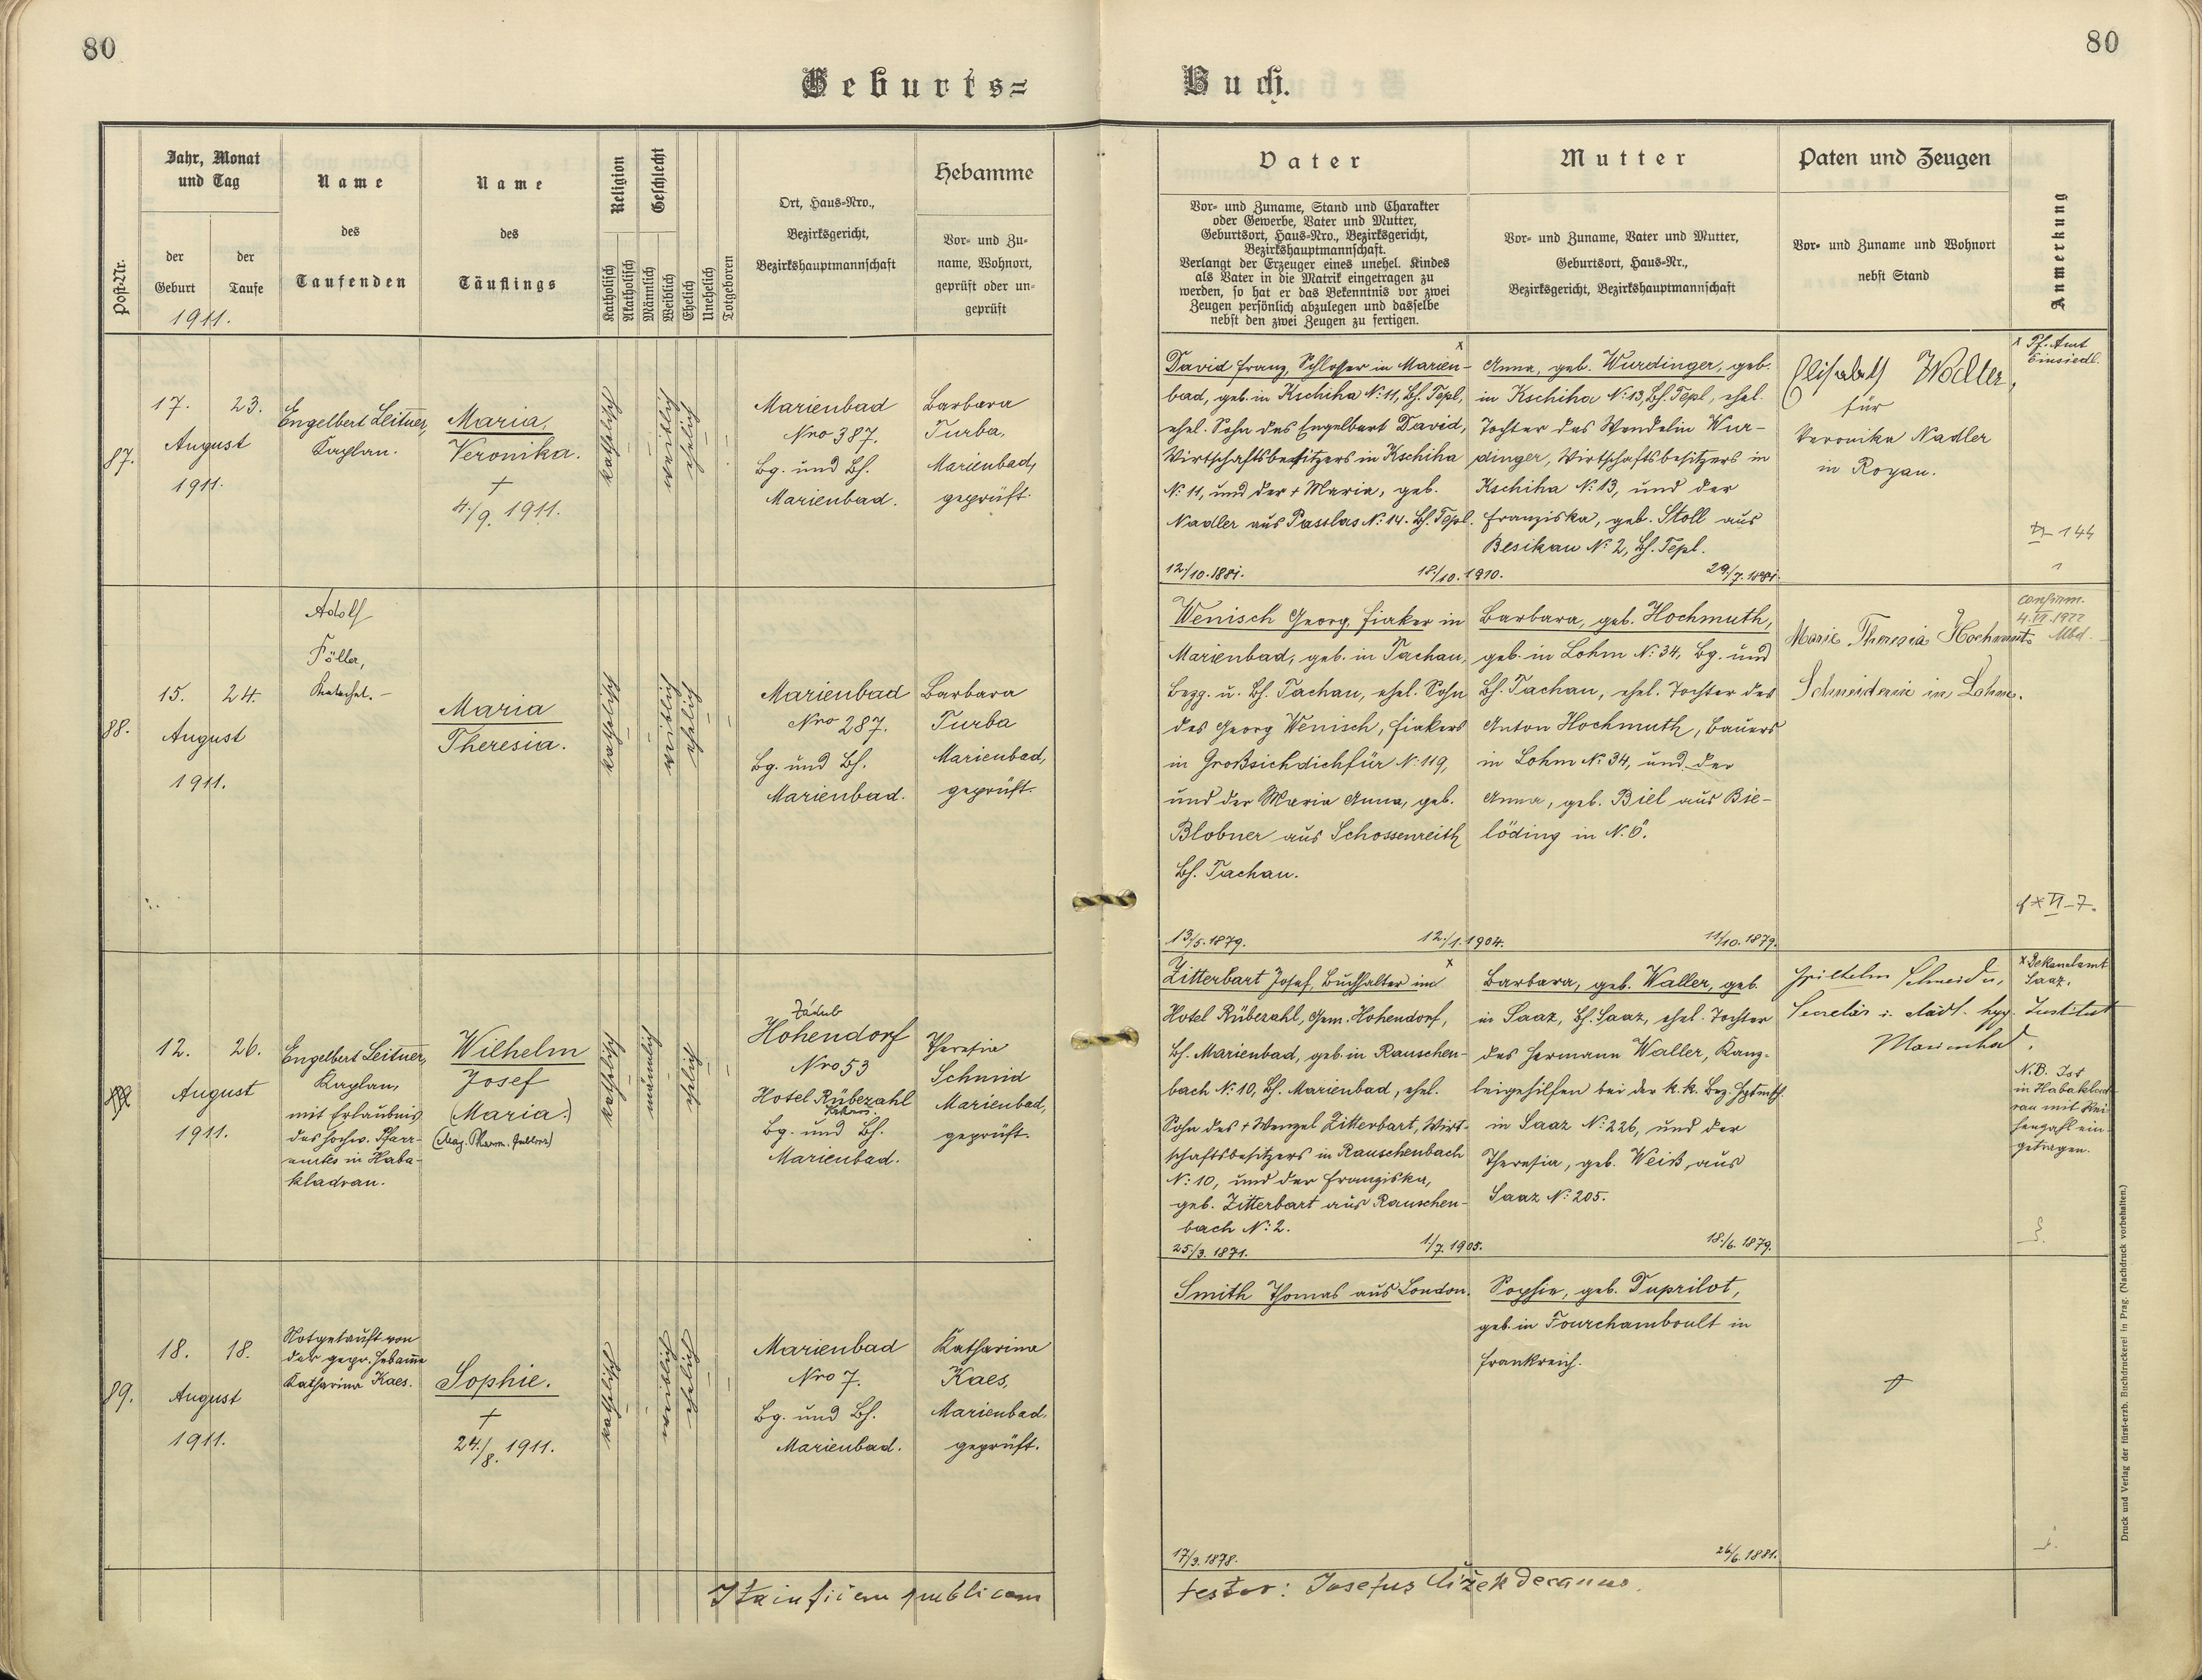 80
80
Geburts=
Buch.
Post-Nr.
Jahr, Monat
und Tag
der
Geburt
der
Taufe
1911.
Name
des
Taufenden
Name
des
Täuflings
Religion
Katholisch
Akatholisch
Geschlecht
Männlich
Weiblich
Ehelich
Unehelich
Totgeboren
Ort, Haus-Nro.,
Bezirksgericht,
Bezirkshauptmannschaft
Hebamme
Vor- und Zu-
name, Wohnort,
geprüft oder un-
geprüft
Vater
Vor- und Zuname, Stand und Charakter
oder Gewerbe, Vater und Mutter,
Geburtsort, Haus-Nro., Bezirksgericht,
Bezirkshauptmannschaft.
Verlangt der Erzeuger eines unehel. Kindes
als Vater in die Matrik eingetragen zu
werden, so hat er das Bekenntnis vor zwei
Zeugen persönlich abzulegen und dasselbe
nebst den zwei Zeugen zu fertigen.
Mutter
Vor- und Zuname, Vater und Mutter,
Geburtsort, Haus-Nr.,
Bezirksgericht, Bezirkshauptmannschaft
Paten und Zeugen
Vor- und Zuname und Wohnort
nebst Stand
Anmerkung
87.
17.
23.
August
1911.
Engelbert Leitner,
Kaplan.
Maria
Veronika.
†
4./9. 1911.
katholisch
weiblich
ehelich
Marienbad
Nro 387.
Bg. und Bh.
Marienbad.
Barbara
Turba,
Marienbad,
geprüft.
x
David Franz, Schlosser in Marien-
bad, geb. in Kschiha N: 11, Bh. Tepl,
ehel. Sohn des Engelbert David,
Wirtschaftsbesitzers in Kschiha
N: 11, und der † Maria, geb.
Nadler aus Passlas N: 14. Bh. Tepl.
12./10. 1881.
18./10. 1910.
Anna, geb. Wurdinger, geb.
in Kschiha N: 13, Bh. Tepl, ehel.
Tochter des Wendelin Wur-
dinger, Wirtschaftsbesitzers in
Kschiha N: 13, und der
Franziska, geb. Stoll aus
Besikau N: 2, Bh. Tepl.
29./7. 1881.
Elisabeth
für
Veronika Nadler
in Royau.
x Pf. Amt
Einsiedl.
144
88.
15.
24.
August
1911.
Adolf
Föller,
Katechet.
Maria
Theresia.
katholisch
weiblich
ehelich
Marienbad
Nro 287.
Bg. und Bh.
Marienbad.
Barbara
Turba
Marienbad,
geprüft.
Wenisch Georg, Fiaker in
Marienbad, geb. in Tachau,
Bezg. u. Bh. Tachau, ehel. Sohn
des Georg Wenisch, Fiakers
in Großsichdichfür N: 119,
und der Maria Anna, geb.
Blobner aus Schossenreith
Bh. Tachau.
13/5. 1879.
12./1. 1904.
Barbara, geb. Hochmuth,
geb. in Lohm N: 34, Bg. und
Bh. Tachau, ehel. Tochter des
Anton Hochmuth, Bauers
in Lohm N: 34, und der
Anna, geb. Biel aus Bie-
löding in N. Ö.
11/10. 1879.
Marie Theresia Hochmuth
Schneiderin in Lohm.
confirm.
4. VI. 1922
Mbd.
12.
26.
August
1911.
Engelbert Leitner,
Kaplan,
mit Erlaubnis
des hochw. Pfarr-
amtes in Haba-
kladrau.
Wilhelm
Josef
(Maria.)
katholisch
männlich
ehelich
Zádub
Hohendorf
Nro 53
Hotel Rübezahl
Bg. und Bh.
Marienbad.
Theresia
Schmid
Marienbad,
geprüft.
x
Zitterbart Josef, Buchhalter im
Hotel Rübezahl, Gem. Hohendorf,
Bh. Marienbad, geb. in Rauschen-
bach N: 10, Bh. Marienbad, ehel.
Sohn des † Wenzel Zitterbart, Wirt-
schaftsbesitzers in Rauschenbach
N: 10, und der Franziska,
geb. Zitterbart aus Rauschen-
bach N: 2.
25./3. 1871.
1./7. 1905.
Barbara, geb. Waller, geb.
in Saaz, Bh. Saaz, ehel. Tochter
des Hermann Waller, Kanz-
leigehilfen bei der k. k. Bez. Hptmsch.
in Saaz N: 226, und der
Theresia, geb. Weiß aus
Saaz N: 205.
18./6. 1879.
Wilhelm Schneider,
Secretär i. städt. hyg. Institut
Marienbad.
x Dekanalamt
Saaz.
N.B. Ist
in Habaklad-
rau mit Rei-
henzahl ein-
getragen.
89.
18.
18.
August
1911.
Notgetauft von
der gepr. Hebamme
Katharina Kaes.
Sophie.
†
24./8. 1911.
katholisch
weiblich
ehelich
Marienbad
Nro 7.
Bg. und Bh.
Marienbad.
Katharina
Kaes,
Marienbad,
geprüft.
Smith Thomas aus London.
17/3. 1878.
Sophie, geb. Duprilot,
geb. in Fourchamboult in
Frankreich.
26/6. 1881.
Ita in fidem publicam
testor: Josefus Čižek decanus.
Druck und Verlag der fürst-erzb. Buchdruckerei in Prag. (Nachdruck vorbehalten.)